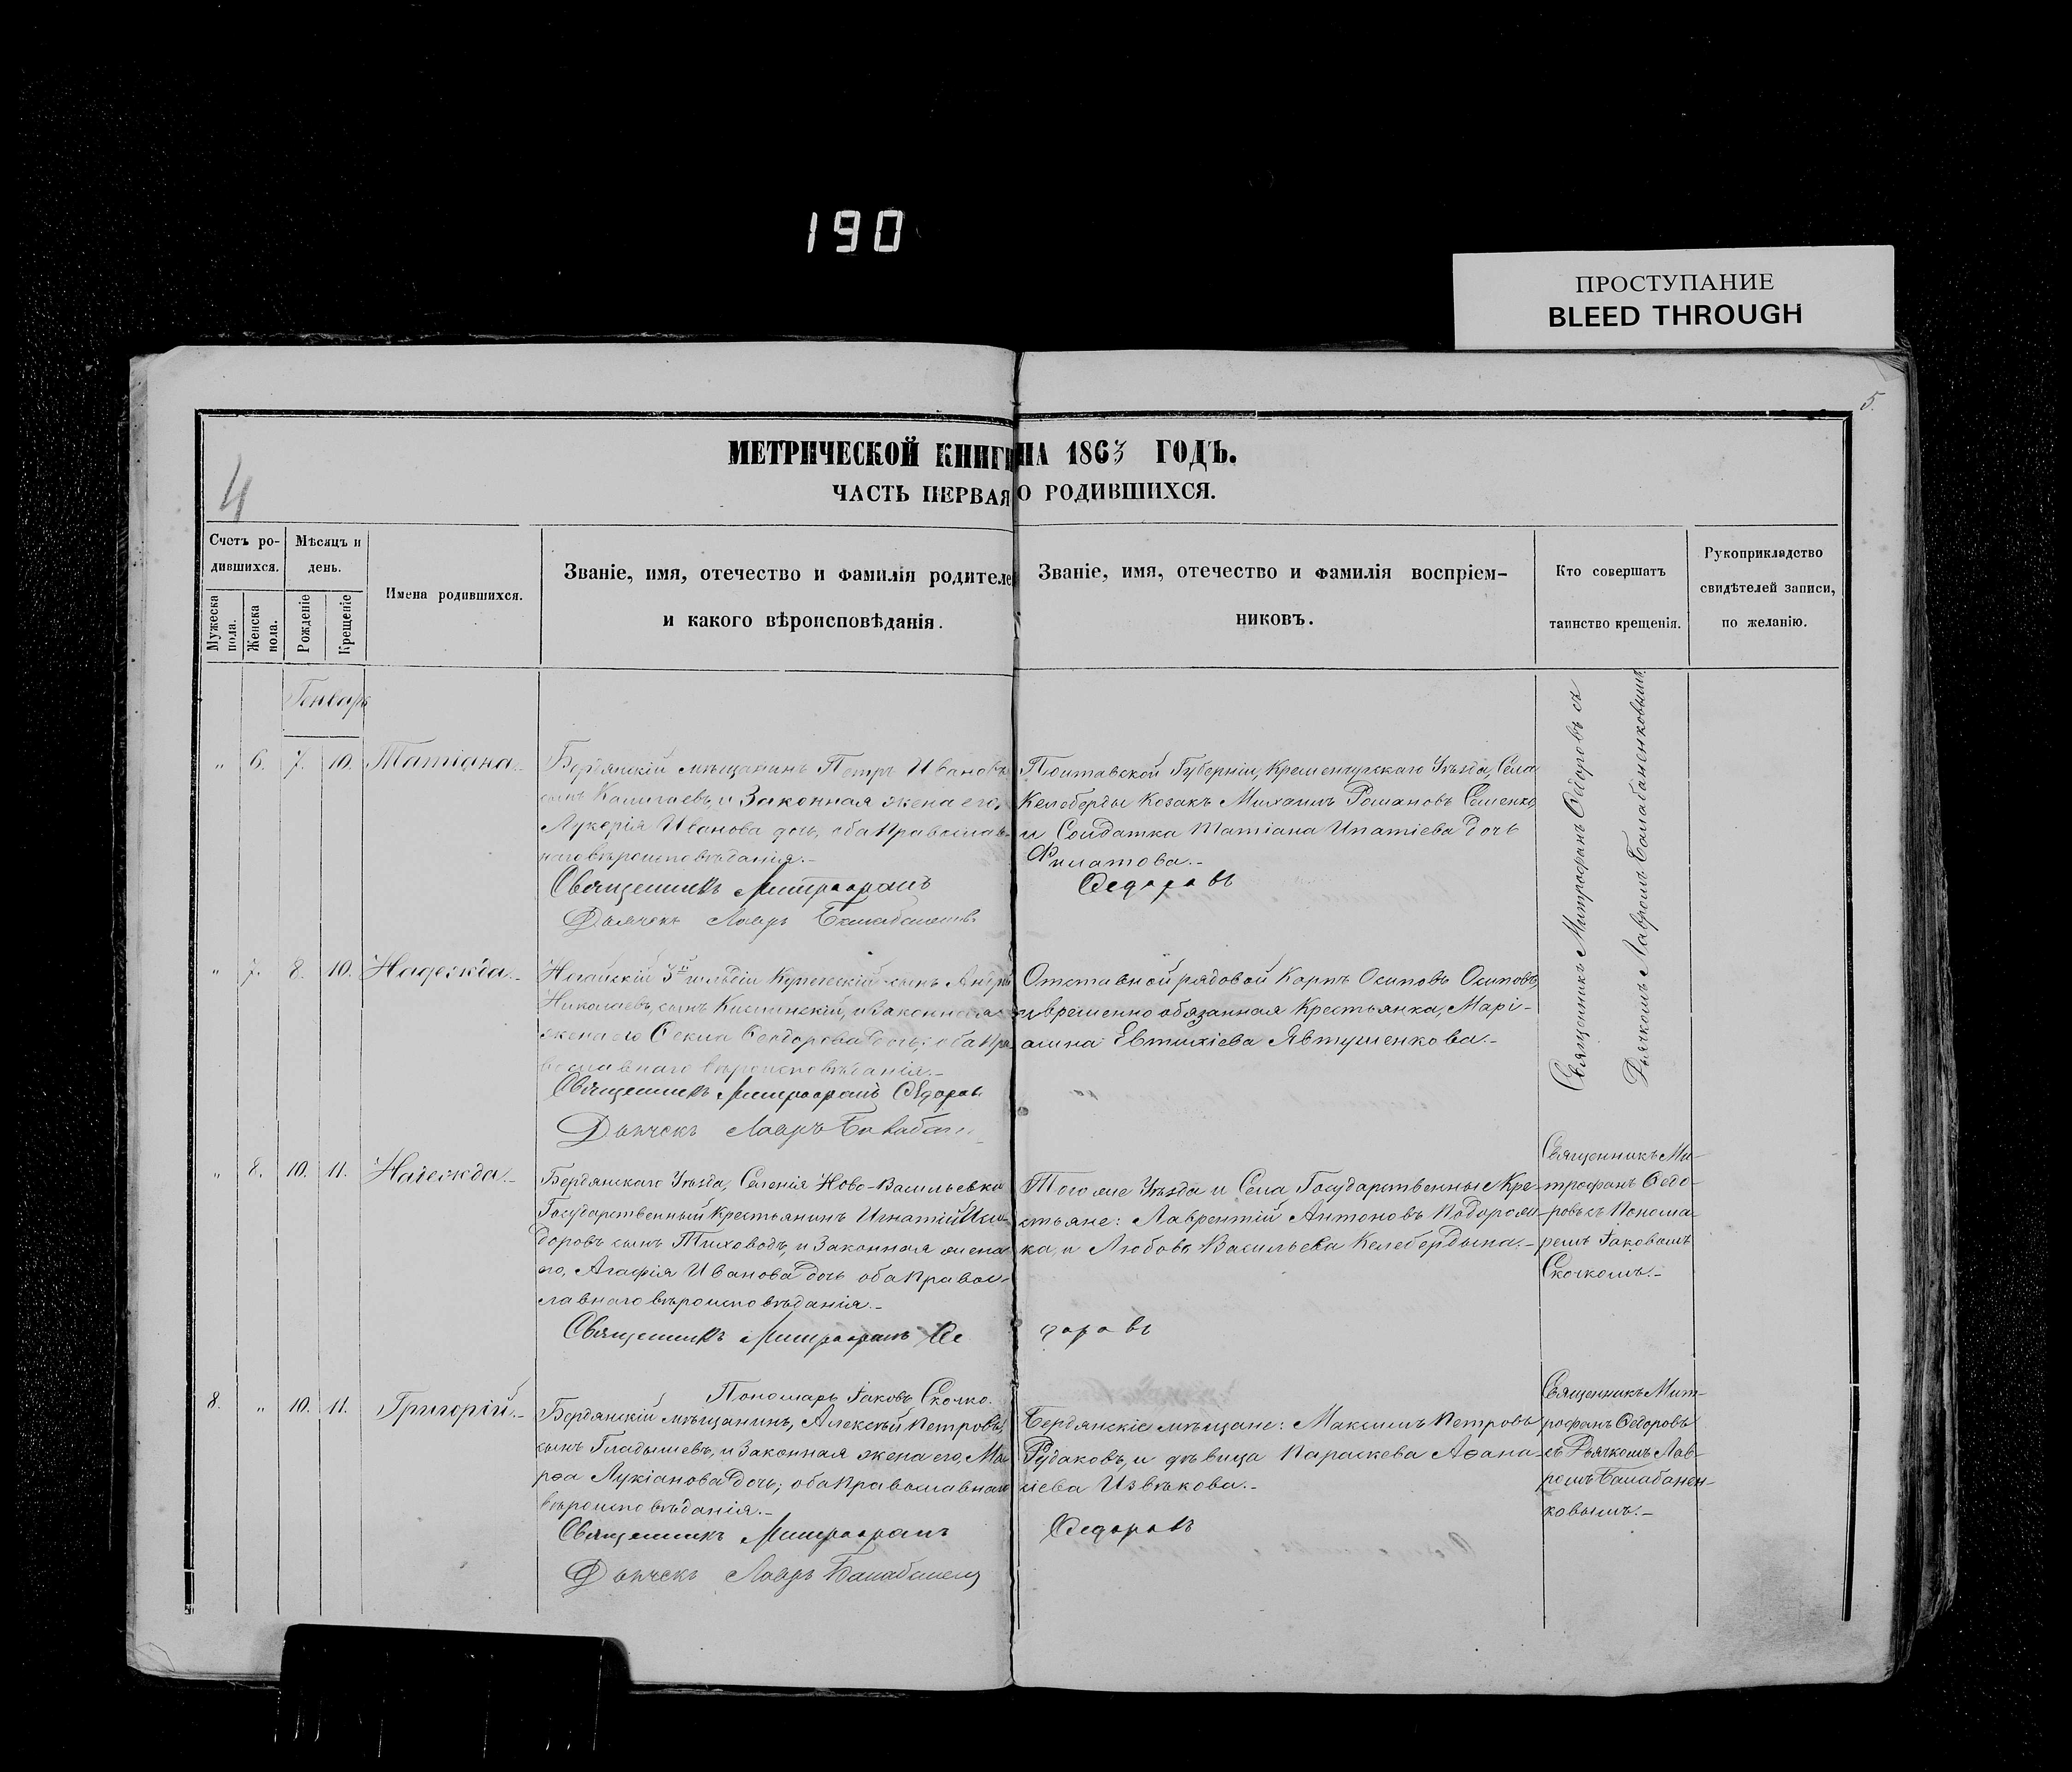 190
ПРОСТУПАНИЕ
BLEED THROUGH
5.
4
МЕТРИЧЕСКОЙ КНИГИ НА 1863 ГОДЪ.
ЧАСТЬ ПЕРВАЯ О РОДИВШИХСЯ.
Счетъ ро-
дившихся.
Мужеска пола.
Женска пола.
Мѣсяцъ и
день.
Рожденіе
Крещеніе
Имена родившихся.
Званіе, имя, отечество и фамилія родителей
и какого вѣроисповѣданія.
Званіе, имя, отечество и фамилія воспріем-
никовъ.
Кто совершатъ
таинство крещенія.
Рукоприкладство
свидѣтелей записи,
по желанію.
Генварь
„ 6. 7. 10. Татіана.
Бердянскій мѣщанинъ Петръ Ивановъ
сынъ и Законная жена его,
Лукерія Иванова дочь, оба Православ-
наго вѣроисповѣданія.-
Священникъ Митрофанъ
Дьячекъ Лавръ
Полтавской Губерніи, Кременчугскаго Уѣзда, Села
Келеберды Козакъ Михаилъ Романовъ
и Солдатка Татіана Ипатіева дочь
Филатова.-
Федоровъ
Священникъ Митрофанъ Ѳедоровъ съ
Дьячкомъ Лавромъ Балабаненковымъ
„ 7. 8. 10. Надежда.-
Ногайскій 3й гильдіи Купеческій сынъ Андрей
Николаевъ сынъ и Законная
жена его Ѳекла Ѳеодорова дочь; оба Пра-
вославнаго вѣроисповѣданія.-
Священникъ Митрофанъ Федоровъ
Дьячекъ Лавръ
Отставной рядовой Карпъ Осиповъ Осиповъ,
и временно обязанная Крестьянка, Марі-
амна Евтихіева Явтушенкова.-
„ 8. 10. 11. Надежда.-
Бердянскаго Уѣзда, Селенія Ново-Васильевки
Государственный Крестьянинъ Игнатій Иси-
доровъ сынъ Тиховодъ, и Законная жена
его, Агафія Иванова дочь оба Правос-
лавнаго вѣроисповѣданія.-
Священникъ Митрофанъ Фе
доровъ
Пономарь Іаковъ Скочко.
Того же Уѣзда и Села Государственные Кре-
стьяне: Лаврентій Антоновъ
ка, и Любовь Васильева Келебердына.-
Священникъ Ми-
трофанъ Ѳедо-
ровъ съ Понома-
ремъ Іаковомъ
Скочкомъ.-
8. „ 10. 11. Григорій.-
Бердянскій мѣщанинъ, Алексѣй Петровъ
сынъ Гладышевъ, и Законная жена его, Ма-
рѳа Лукіанова дочь; оба Православнаго
вѣроисповѣданія.-
Священникъ Митрофанъ
Дьячекъ Лавръ
Бердянскіе мѣщане: Максимъ Петровъ
Рудаковъ, и дѣвица Параскева Аѳана-
сіева Извѣкова.-
Федоровъ
Священникъ Мит-
рофанъ Ѳедоровъ
съ Дьячкомъ Лав-
ромъ Балабанен-
ковымъ.-